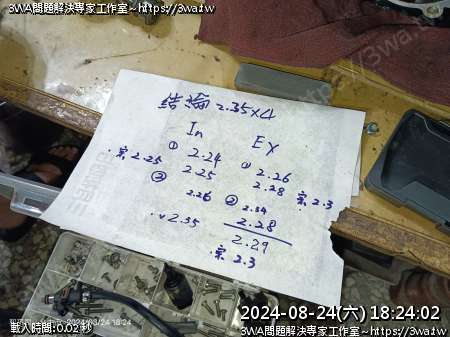 3WA問題解決專家工作室~https://3wa.tw
3WA問題解決專家工作室~https://3wa.tw
https://3wa.tw
結論 2.35x4
In EX
① 2.24 ① 2.26
2.25 2.25 2.28 2.3
② 2.26 ② 2.34
2.35 2.28
2.29
2.3
2024/08/24 18:24
2024-08-24(六) 18:24:02
載入時間:0.02 秒
3WA問題解決專家工作室~https://3wa.tw